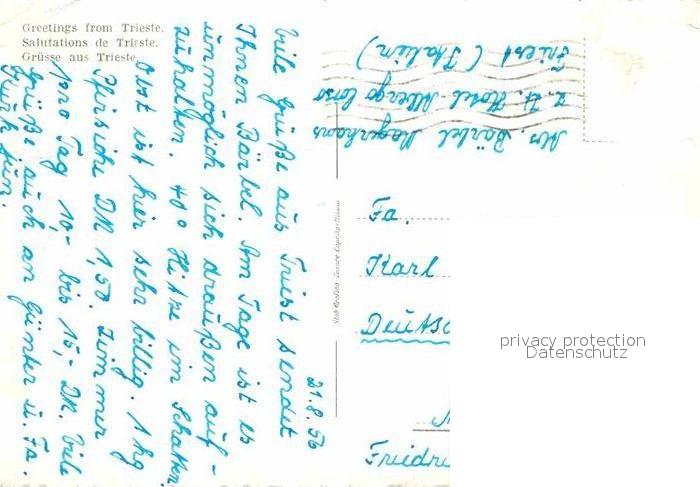 Greetings from Trieste.
Salutations de Trieste.
Grüsse aus Trieste.
21.8.56
Viele Grüße aus Triest sendet
Ihnen Bärbel. Am Tage ist es
unmöglich sich draußen auf-
zuhalten. 40° Hitze im Schatten.
Obst ist hier sehr billig. 1 kg
Pfirsiche DM 1,50. Zimmer
pro Tag 10,- bis 15,- DM. Viele
Grüße auch an Günter u. Fa.
Mrs. Bärbel
z. Zt. Hotel Albergo Corso
Triest (Italien)
Fa.
Karl
Deutsc
Friedri
privacy protection
Datenschutz